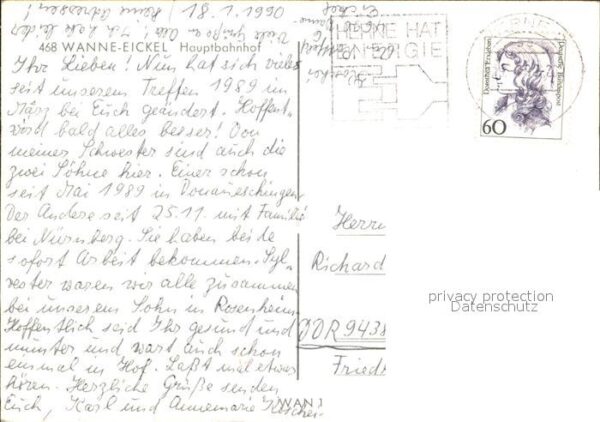 18.1.1990
468 WANNE-EICKEL Hauptbahnhof
Ihr Lieben! Nun hat sich vieles
seit unserem Treffen 1989 im
März bei Euch geändert. Hoffentl.
wird bald alles besser! Von
meiner Schwester sind auch die
zwei Söhne hier. Einer schon
seit Mai 1989 in Donaueschingen
Der Andere seit 25.11. mit Familie
bei Nürnberg. Sie haben beide
sofort Arbeit bekommen. Syl-
vester waren wir alle zusammen
bei unserem Sohn in Rosenheim.
Hoffentlich seid Ihr gesund und
munter und wart auch schon
einmal in Hof. Laßt mal etwas
hören. Herzliche Grüße senden
Euch, Karl und Annemarie
HERNE HAT
ENERGIE
Dorothea Erxleben
Deutsche Bundespost
60
Herrn
Richard
DDR 9438
Fried
privacy protection
Datenschutz
WAN 1